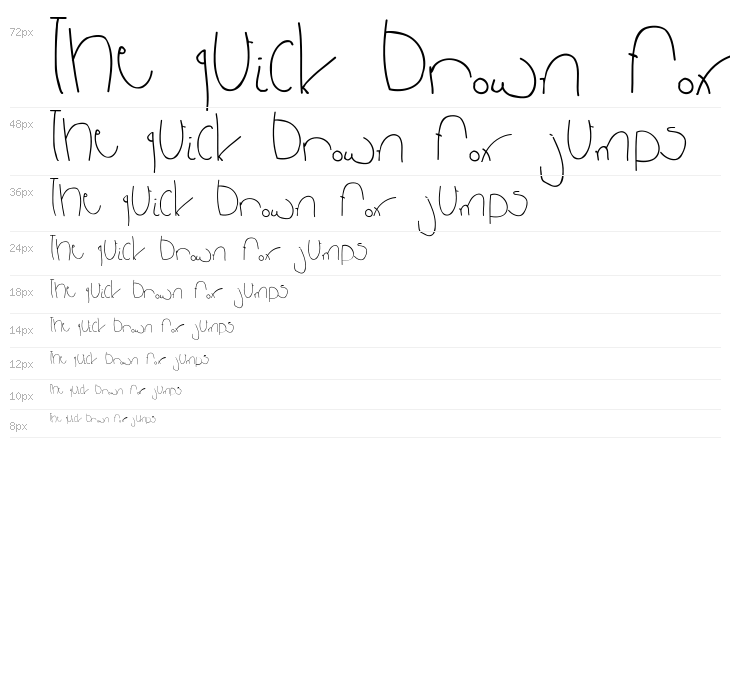 72px The quick Brown fox
48px The quick Brown fox jumps
36px The quick Brown fox jumps
24px The quick Brown fox jumps
18px The quick Brown fox jumps
14px The quick Brown fox jumps
12px The quick Brown fox jumps
10px The quick Brown fox jumps
8px The quick Brown fox jumps